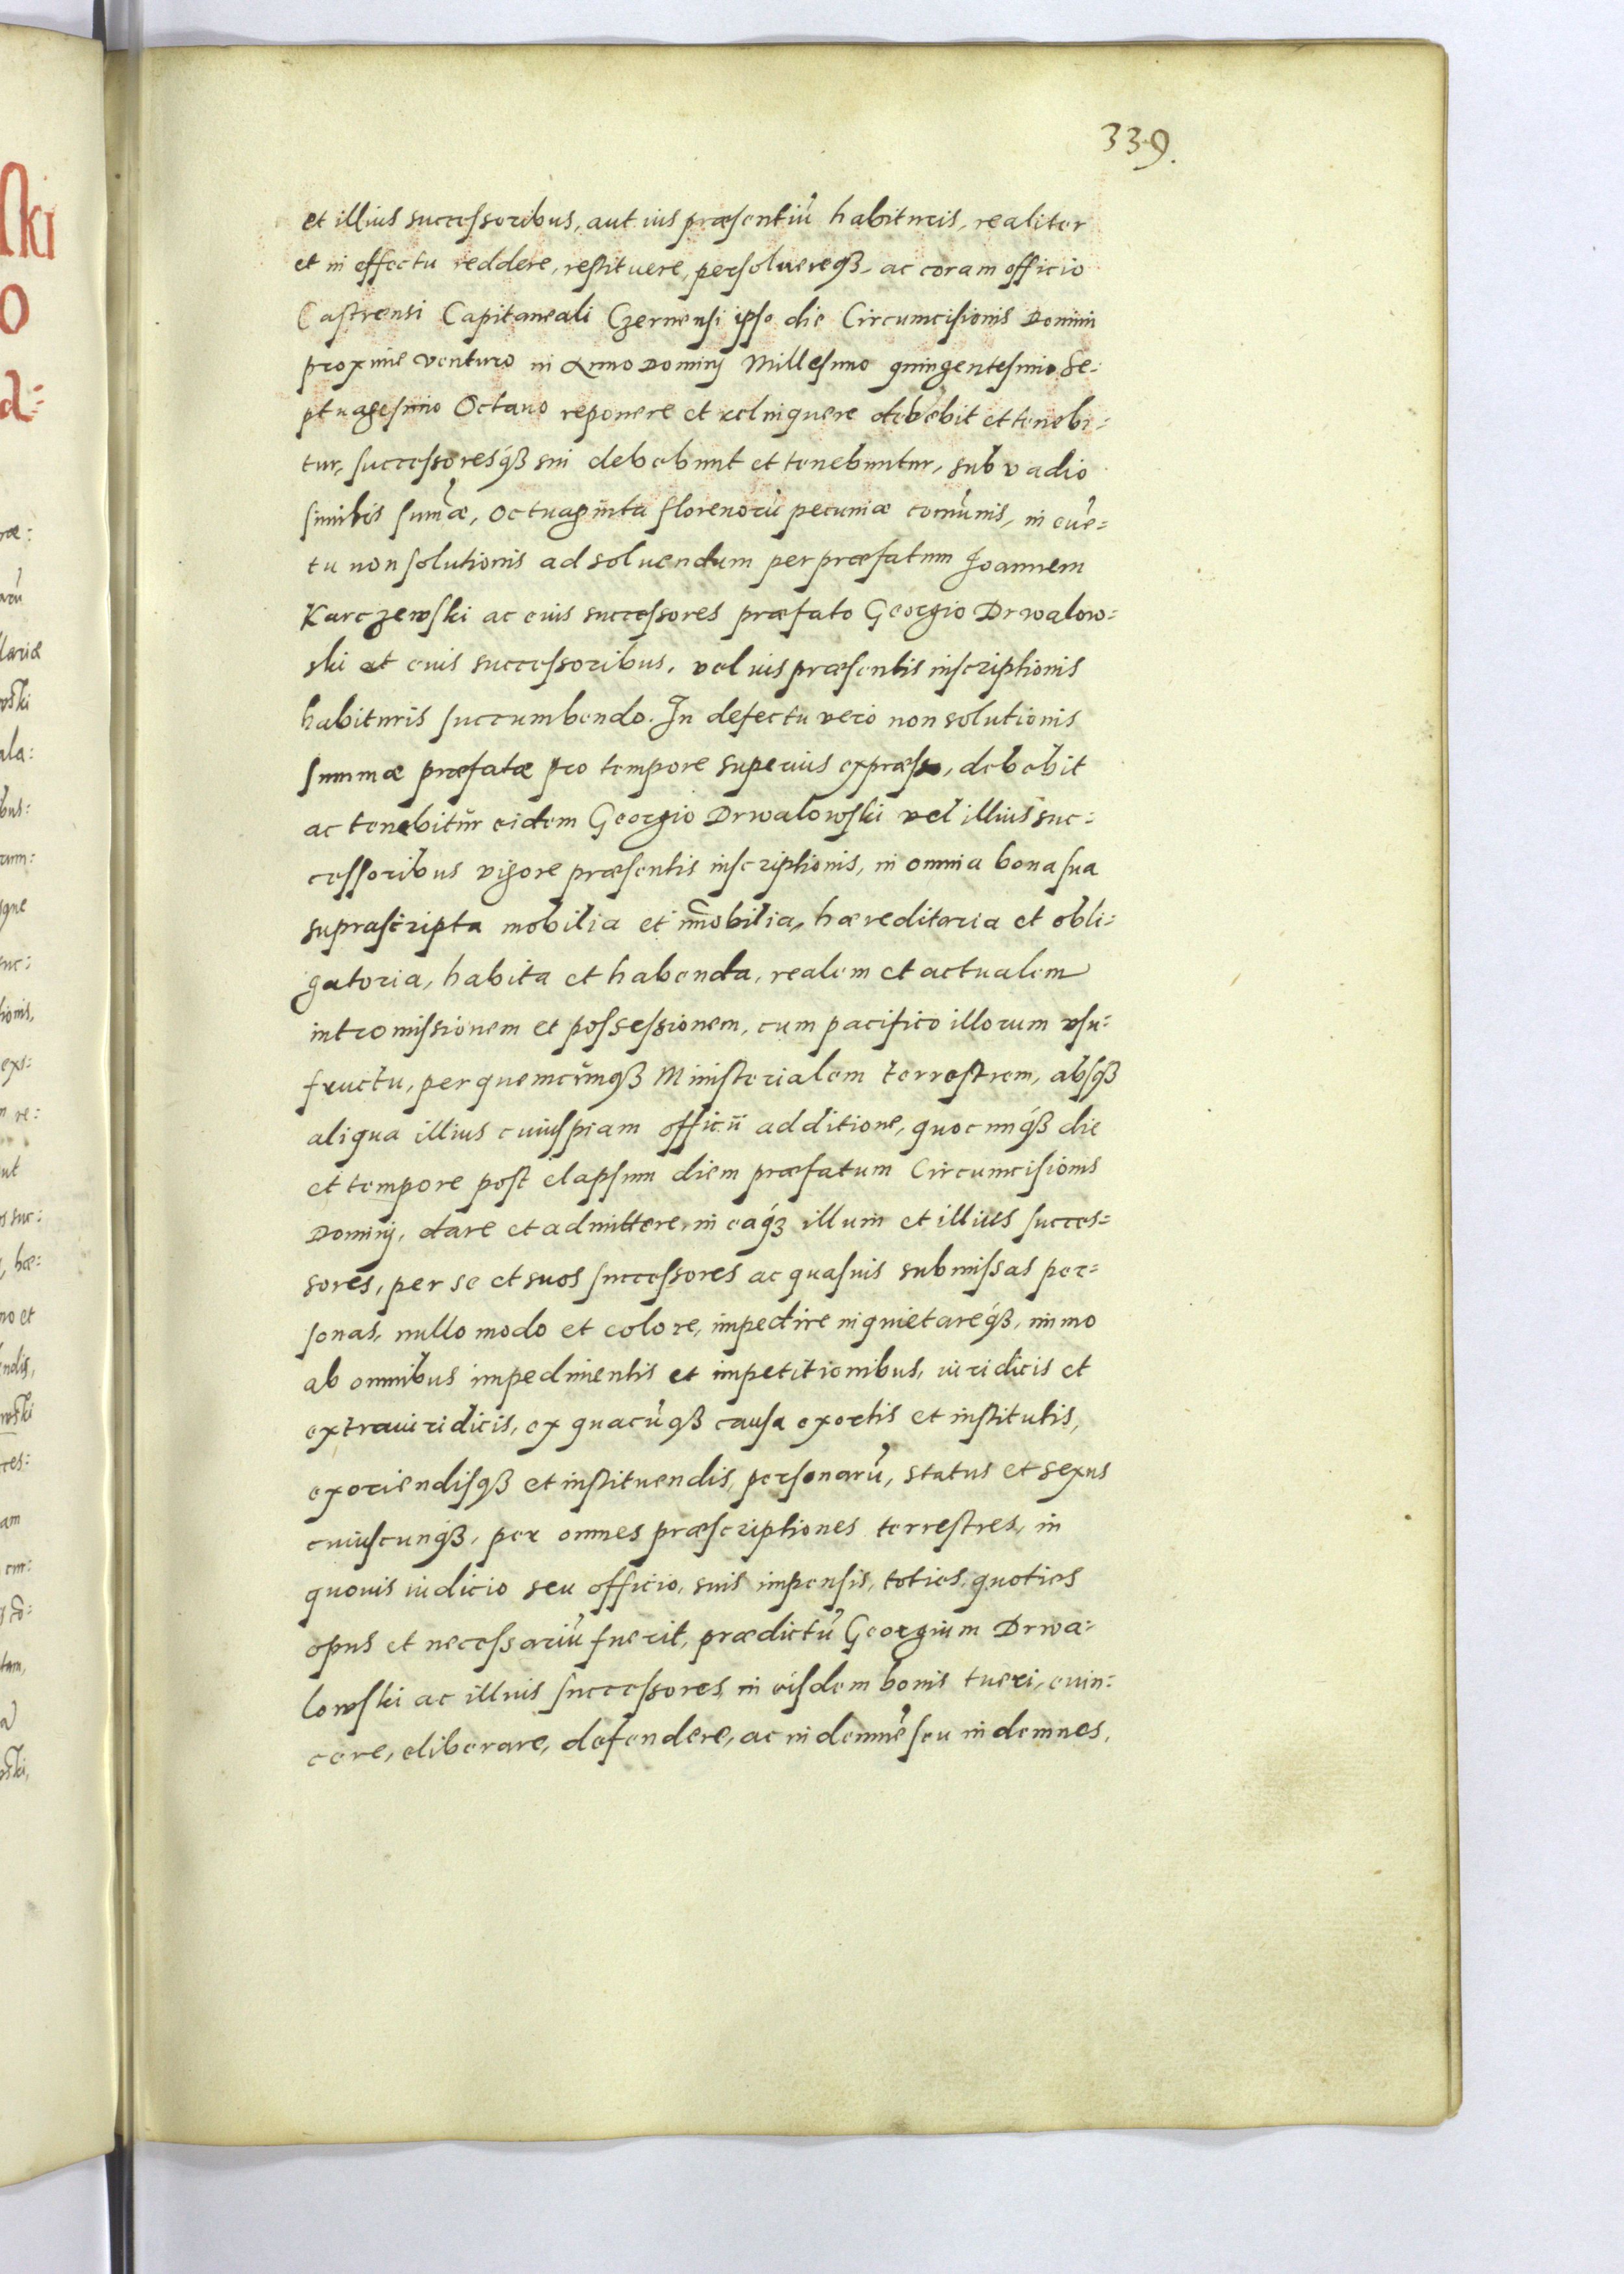 339.
et illius successoribus, aut ius præsentiū habituris, realiter
et in effectu reddere, restituere, persoluereqȝ, ac coram officio
Castrensi Capitaneali Czernensi ipso die Circumcisionis Domini
proxime venturo in Anno Dominj Millesimo quingentesimo Se:
ptuagesimo Octauo reponere et relinquere debebit et tenebi:
tur, successoresqȝ sui debebunt et tenebuntur, sub vadio
similis sum̄æ, octuaginta florenorū pecuniæ com̄unis, in euē=
tu non solutionis ad soluendum per præfatum Joannem
Karczewski ac euis successores præfato Georgio Drwalow=
ski et euis successoribus, vel ius præsentis inscriptionis
habituris succumbendo. In defectu vero non solutionis
summæ præfatæ pro tempore superius expræsso, debebit
ac tenebitur eidem Georgio Drwalowski vel illius suc=
cessoribus vigore præsentis inscriptionis, in omnia bona sua
suprascripta mobilia et im̄obilia, hæreditaria et obli:
gatoria, habita et habenda, realem et actualem
intromissionem et possessionem, cum pacifico illorum vsu:
fructu, per quemcunqȝ Ministerialem terrestrem, absqȝ
aliqua illius cuiuspiam officii additione, quocunqȝ die
et tempore post elapsum diem præfatum Circumcisionis
Dominj, dare et admittere, in eaqȝ illum et illius succes=
sores, per se et suos successores ac quasuis submissas per=
sonas, nullo modo et colore, impedire inquietareqȝ, immo
ab omnibus impedimentis et impetitionibus, iuridicis et
extraiuridicis, ex quacūqȝ causa exortis et institutis,
exoriendisqȝ et instituendis, personarū, status et sexus
cuiuscunqȝ, per omnes præscriptiones terrestres, in
quouis iudicio seu officio, suis impensis, toties, quoties
opus et necessariū fuerit, prædictū Georgium Drwa:
lowski ac illius successores, in eisdem bonis tueri, euin:
cere, eliberare, defendere, ac indemnē seu indemnes,